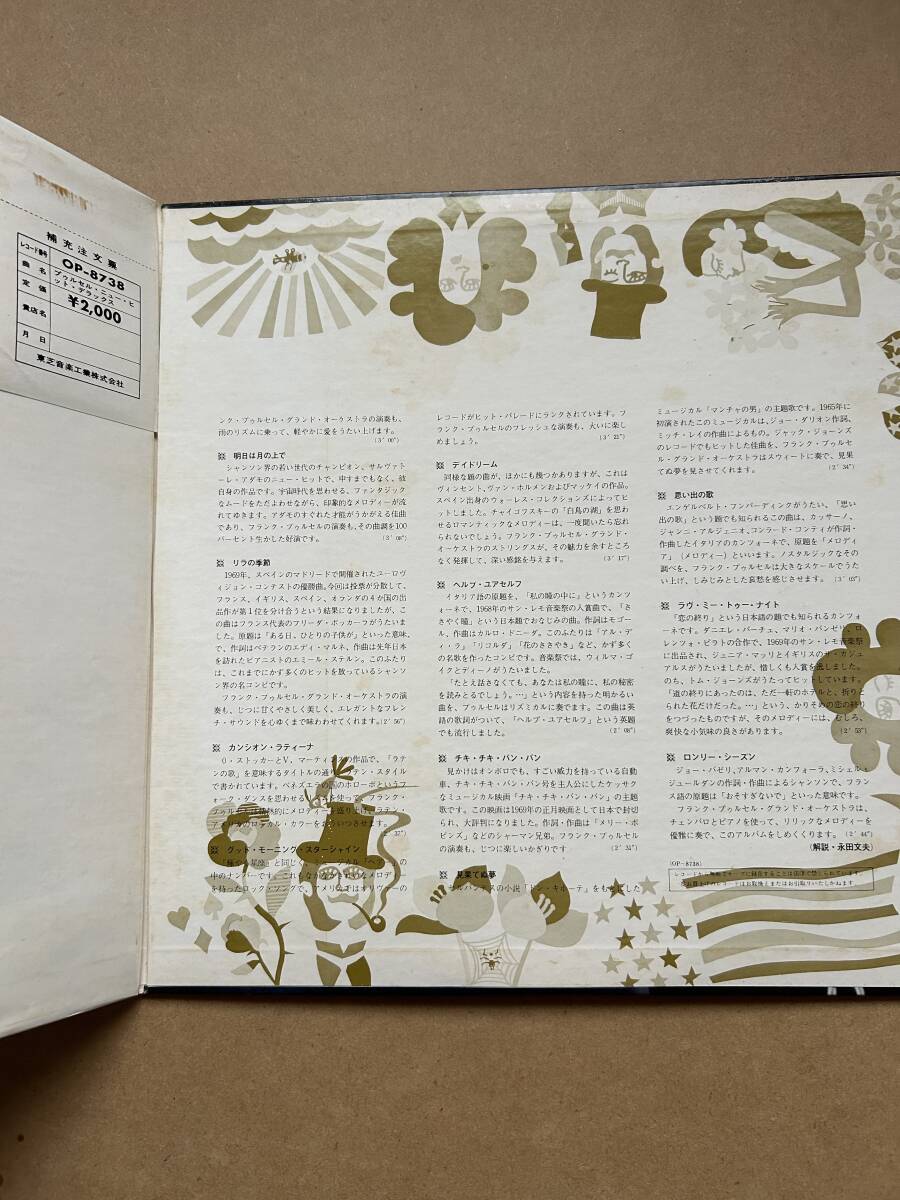 補充注文票
レコード番号 OP-8738
曲名 プゥルセル・ニュー・ヒット・デラックス
定価 ¥2,000
貴店名
月日
東芝音楽工業株式会社
ンク・プゥルセル・グランド・オーケストラの演奏も、
雨のリズムに乗って、軽やかに愛をうたい上げます。
(3′00″)
※ 明日は月の上で
シャンソン界の若い世代のチャンピオン、サルヴァト
ーレ・アダモのニュー・ヒットで、申すまでもなく、彼
自身の作品です。宇宙時代を思わせる、ファンタジック
なムードをただよわせながら、印象的なメロディーが流
れてゆきます。アダモのすぐれた才能がうかがえる佳曲
であり、フランク・プゥルセルの演奏も、その曲調を100
パーセント生かした好演です。
(3′08″)
※ リラの季節
1969年、スペインのマドリードで開催されたユーロヴ
ィジョン・コンテストの優勝曲。今回は投票が分散して、
フランス、イギリス、スペイン、オランダの4か国の出
品作が第1位を分け合うという結果になりましたが、こ
の曲はフランス代表のフリーダ・ボッカーラがうたいま
した。原題は「ある日、ひとりの子供が」といった意味
で、作詞はベテランのエディ・マルネ、作曲は先年日本
を訪れたピアニストのエミール・ステルン。このふたり
は、これまでにかず多くのヒットを放っているシャンソ
ン界の名コンビです。
フランク・プゥルセル・グランド・オーケストラの演
奏も、じつに甘くやさしく美しく、エレガントなフレン
チ・サウンドを心ゆくまで味わわせてくれます。(2′56″)
※ カンシオン・ラティーナ
O・ストッカーとV、マーティスの作品で、「ラテ
ンの歌」を意味するタイトルの通り、ラテン・スタイル
で書かれています。ベネズエラの国のホローポというフ
ォーク・ダンスを思わせる
を使って、フランク・
プゥルセル
情熱的にメロディーを盛り上げ、ラテン・
アメリカのローカル・カラーを
いつさせます。
(2′37″)
※ グッド・モーニング・スターシャイン
「輝く星座」と同じく、ミュージカル「ヘアー」の
中のナンバーです。これもなかなかきれいなメロディー
を持ったロック・ソングで、アメリカではオリヴァーの
レコードがヒット・パレードにランクされています。フ
ランク・プゥルセルのフレッシュな演奏も、大いに楽し
めましょう。
(3′21″)
※ デイドリーム
同様な題の曲が、ほかにも幾つかありますが、これは
ヴィンセント、ヴァン・ホルメンおよびマッケイの作品。
スペイン出身のウォーレス・コレクションズによってヒ
ットしました。チャイコフスキーの「白鳥の湖」を思わ
せるロマンティックなメロディーは、一度聞いたら忘れ
られないでしょう。フランク・プゥルセル・グランド・
オーケストラのストリングスが、その魅力を余すところ
なく発揮して、深い感銘を与えます。
(3′17″)
※ ヘルプ・ユアセルフ
イタリア語の原題を、「私の瞳の中に」というカンツ
ォーネで、1968年のサン・レモ音楽祭の入賞曲で、「さ
さやく瞳」という日本題でおなじみの曲。作詞はモゴー
ル、作曲はカルロ・ドニーダ。このふたりは「アル・デ
ィ・ラ」「リコルダ」「花のささやき」など、かず多く
の名歌を作ったコンビです。音楽祭では、ウィルマ・ゴ
イクとディーノがうたいました。
「たとえ話さなくても、あなたは私の瞳に、私の秘密
を読みとるでしょう。…」という内容を持った明るい
曲を、プゥルセルはリズミカルに奏でます。この曲は英
語の歌詞がついて、「ヘルプ・ユアセルフ」という英題
でも流行しました。
(2′08″)
※ チキ・チキ・バン・バン
見かけはオンボロでも、すごい威力を持っている自動
車、チキ・チキ・バン・バン号を主人公にしたケッサク
なミュージカル映画「チキ・チキ・バン・バン」の主題
歌です。この映画は1969年の正月映画として日本で封切
られ、大評判になりました。作詞・作曲は「メリー・ポ
ピンズ」などのシャーマン兄弟。フランク・プゥルセル
の演奏も、じつに楽しいかぎりです。
(2′31″)
※ 見果てぬ夢
セルバンテスの小説「ドン・キホーテ」をもとにした
ミュージカル「マンチャの男」の主題歌です。1965年に
初演されたこのミュージカルは、ジョー・ダリオン作詞、
ミッチ・レイの作曲によるもの。ジャック・ジョーンズ
のレコードでもヒットした佳曲を、フランク・プゥルセ
ル・グランド・オーケストラはスウィートに奏で、見果
てぬ夢を見させてくれます。
(2′34″)
※ 思い出の歌
エンゲルベルト・フンパーディンクがうたい、「思い
出の歌」という題でも知られるこの曲は、カッサーノ、
ジャンニ・アルジェニオ、コンラード・コンティが作詞・
作曲したイタリアのカンツォーネで、原題を「メロディ
ア」(メロディー)といいます。ノスタルジックなその
調べを、フランク・プゥルセルは大きなスケールでうた
い上げ、しみじみとした哀愁を感じさせます。(3′03″)
※ ラヴ・ミー・トゥー・ナイト
「恋の終り」という日本語の題でも知られるカンツォ
ーネです。ダニエレ・パーチェ、マリオ・パンゼリ、ロ
レンツォ・ピラトの合作で、1969年のサン・レモ音楽祭
に出品され、ジェニア・マッリとイギリスのザ・カジュ
アルスがうたいましたが、惜しくも入賞を逸しました。
のち、トム・ジョーンズがうたってヒットしています。
「道の終りにあったのは、ただ一軒のホテルと、折りと
られた花だけだった。…」という、かりそめの恋の終り
をつづったものですが、そのメロディーには、むしろ、
爽快な小気味の良さがあります。
(2′53″)
※ ロンリー・シーズン
ジョー・バゼリ、アルマン・カンフォーラ、ミシェル・
ジュールダンの作詞・作曲によるシャンソンで、フラン
ス語の原題は「おそすぎないで」といった意味です。
フランク・プゥルセル・グランド・オーケストラは、
チェンバロとピアノを使って、リリックなメロディーを
優雅に奏で、このアルバムをしめくくります。(2′44″)
(解説・永田文夫)
(OP-8738)
レコードから無断でテープに録音することは法律で禁じられています。